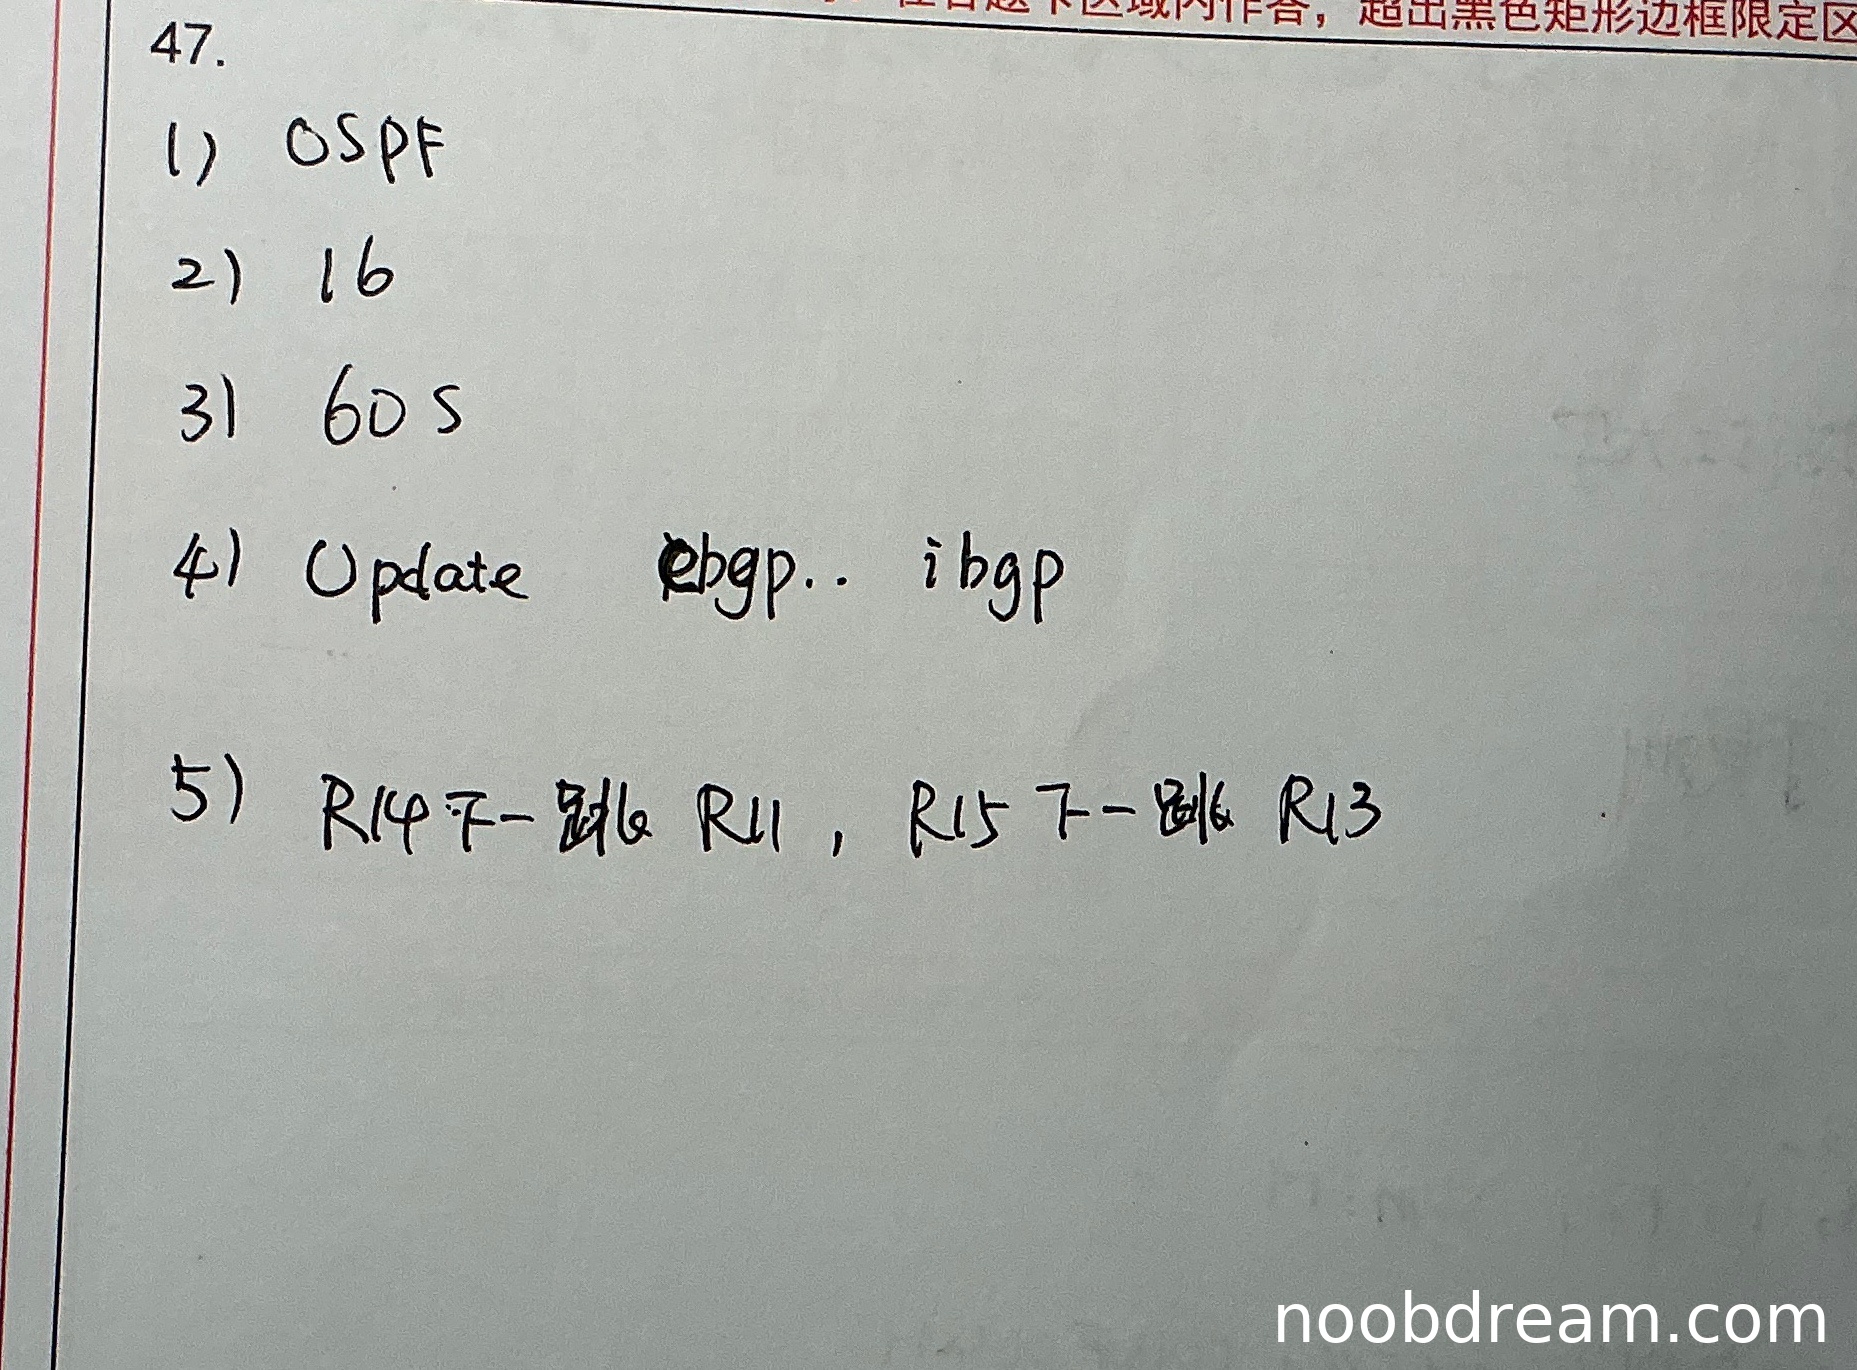 在答题卡区域内作答，超出黑色矩形边框限定区
47.
1) OSPF
2) 16
3) 60 S
4) Update ebgp.. ibgp
5) R14下一跳 R11, R15下一跳 R13
noobdream.com